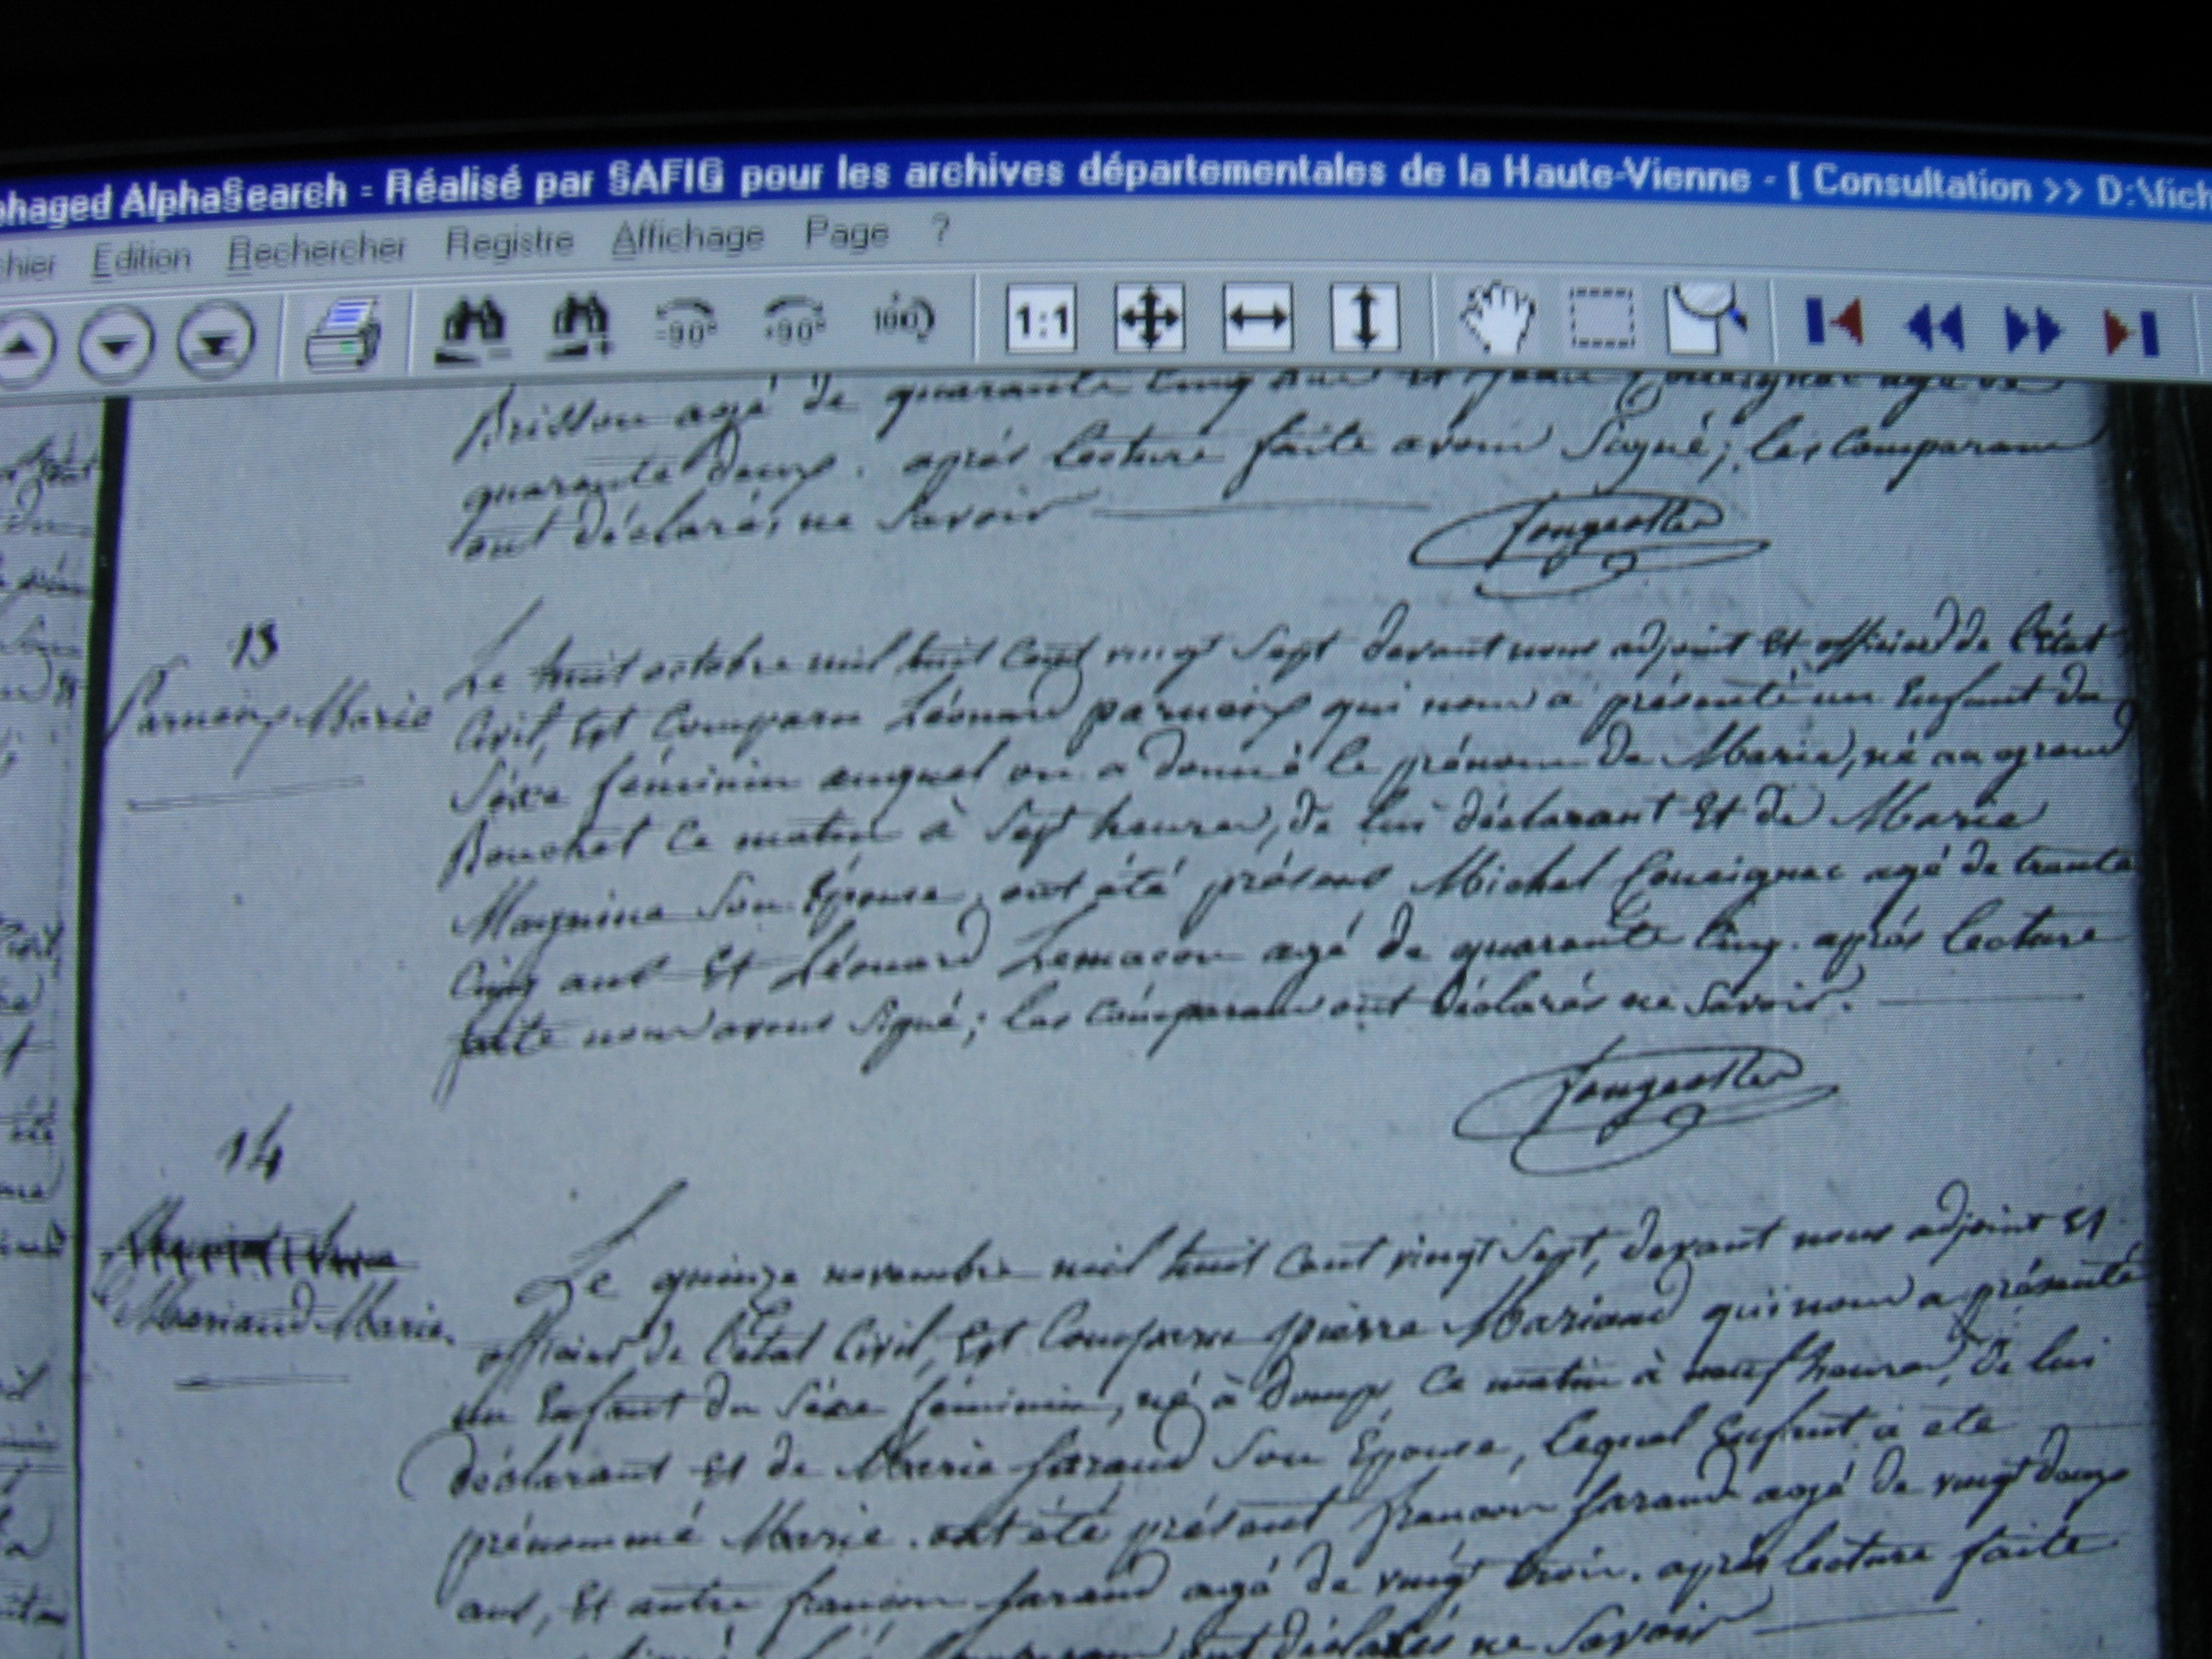 phaged AlphaSearch - Réalisé par SAFIG pour les archives départementales de la Haute-Vienne - [ Consultation >> D:\fich
chier Edition Rechercher Registre Affichage Page ?
-90° +90° 180 1:1
Brisson agé de quarante cinq ans et Jean Couseignac agé de
quarante deux. après lecture faite avons signé; les comparans
ont déclarés ne savoir
Fougerollas
13
Parneix Marie
Le huit octobre mil huit cent vingt sept devant nous adjoint et officier de l'état
Civil, Est Comparu Léonard parneix qui nous a présenté un Enfant du
Séxe féminin auquel on a donné le prénom de Marie, né au grand
Bouchet Ce matin à Sept heures, de lui déclarant Et de Marie
son Epouse, ont été présens Michel Couseignac agé de trente
Cinq ans Et Léonard Lemacon agé de quarante Cinq. après lecture
faite nous avons signé; les Comparans ont déclarés ne savoir.
Fougerollas
14
Mariaud Marie.
Le quinze novembre mil huit Cent vingt Sept, devant nous adjoint Et
officier de l'état Civil, Est Comparu pierre Mariaud qui nous a présenté
un Enfant du Séxe féminin, né à Domps, Ce matin à neuf heures, de lui
déclarant Et de Marie faraud Son Epouse, lequel Enfant a été
prénommé Marie. ont été présent francois faraud agé de vingt deux
ans, Et autre francois faraud agé de vingt trois. après lecture faite
ont déclarés ne Savoir